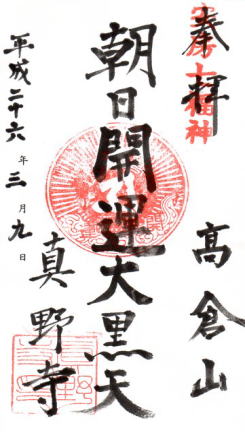 奉拝
高倉山
朝日開運大黒天
真野寺
平成二十六年三月九日